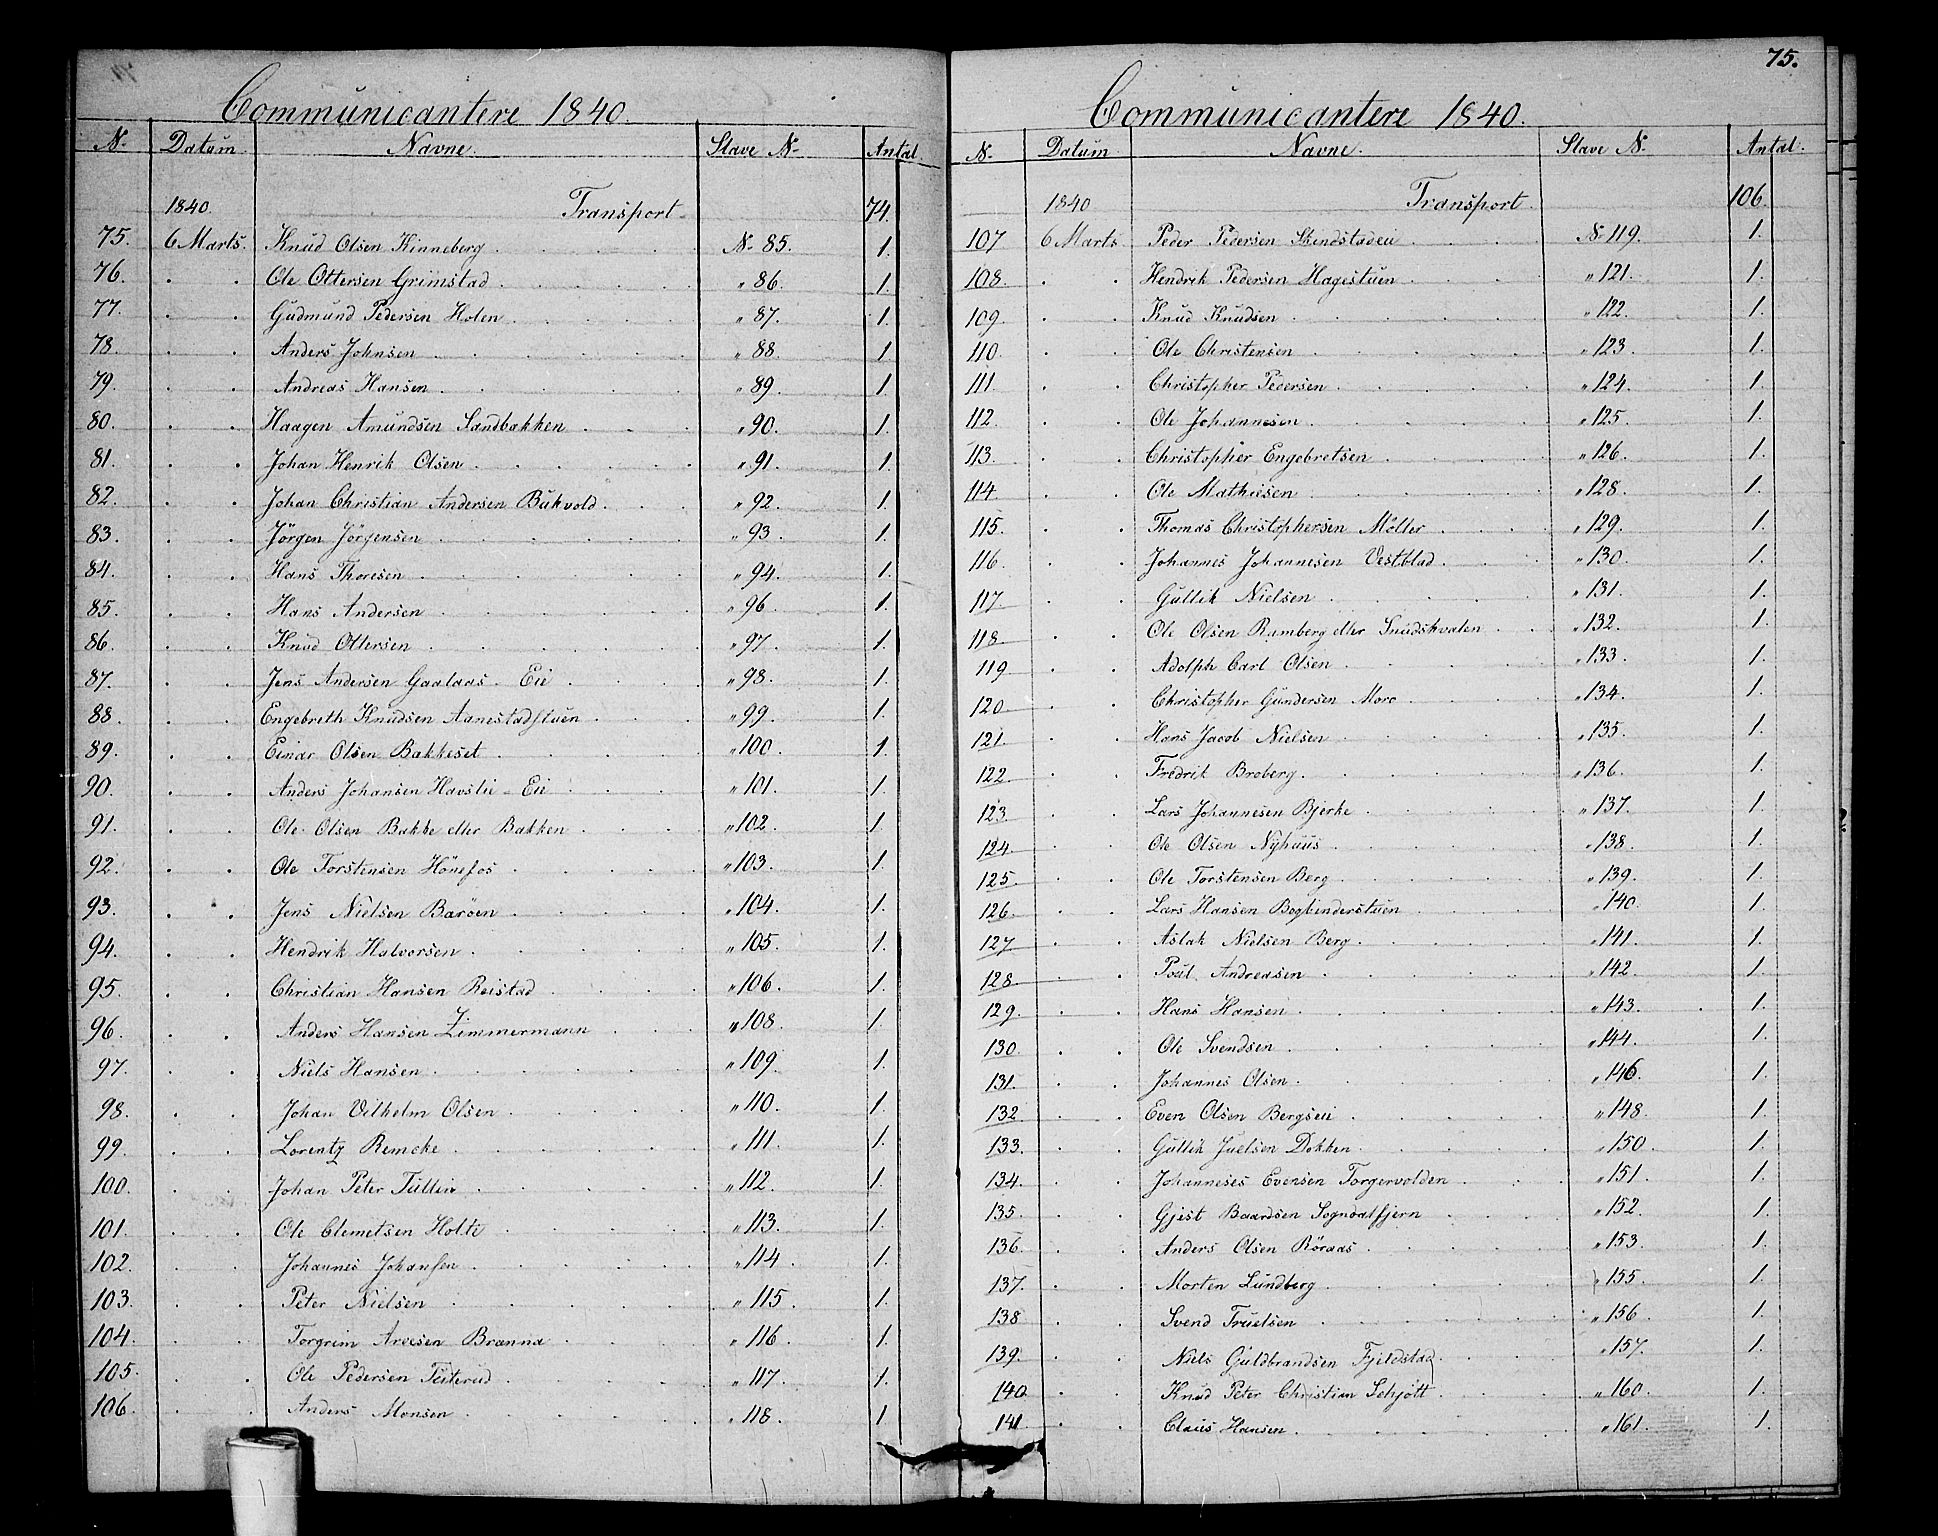 Communicantere 1840.
N. Datum. Navne. Slave N. Antal.
1840. Transport. 74.
75. 6 Marts. Knud Olsen Kinneberg N. 85. 1.
76. Ole Ottersen Grimstad „ 86. 1.
77. Gudmund Pedersen Holen „ 87. 1.
78. Anders Johnsen „ 88. 1.
79. Andreas Hansen „ 89. 1.
80. Haagen Amundsen Sandbakken „ 90. 1.
81. Johan Henrik Olsen „ 91. 1.
82. Johan Christian Andersen Bukvold „ 92. 1.
83. Jörgen Jörgensen „ 93. 1.
84. Hans Thoresen „ 94. 1.
85. Hans Andersen „ 96. 1.
86. Knud Ottersen „ 97. 1.
87. Jens Andersen Gaalaas-Eie „ 98. 1.
88. Engebreth Knudsen Aanestadstuen „ 99. 1.
89. Einar Olsen Bakkeset „ 100. 1.
90. Anders Johansen Havslie-Eie „ 101. 1.
91. Ole Olsen Bakke eller Bakken „ 102. 1.
92. Ole Torstensen Hönefos „ 103. 1.
93. Jens Nielsen Baröen „ 104. 1.
94. Hendrik Halvorsen „ 105. 1.
95. Christian Hansen Reistad „ 106. 1.
96. Anders Hansen Zimmermann „ 108. 1.
97. Niels Hansen „ 109. 1.
98. Johan Vilhelm Olsen „ 110. 1.
99. Lorentz Remcke „ 111. 1.
100. Johan Peter Tullin „ 112. 1.
101. Ole Clemetsen Holte „ 113. 1.
102. Johannes Johansen „ 114. 1.
103. Peter Nielsen „ 115. 1.
104. Torgrim Areesen Brænna „ 116. 1.
105. Ole Pedersen Teiterud „ 117. 1.
106. Anders Monsen „ 118. 1.
75.
Communicantere 1840.
N. Datum Navne. Slave N. Antal.
1840 Transport. 106.
107 6 Marts Peder Pedersen N. 119. 1.
108. Hendrik Pedersen Hagestuen „ 121. 1.
109. Knud Knudsen „ 122. 1.
110. Ole Christensen „ 123. 1.
111. Christopher Pedersen „ 124. 1.
112. Ole Johannesen „ 125. 1.
113. Christopher Engebretsen „ 126. 1.
114. Ole Mathiesen „ 128. 1.
115. Thomas Christophersen Möller „ 129. 1.
116. Johannes Johannesen Vestblad „ 130. 1.
117. Gullik Nielsen „ 131. 1.
118. Ole Olsen Ramberg eller Snudskvalen „ 132. 1.
119. Adolph Carl Olsen „ 133. 1.
120. Christopher Gundersen Moro „ 134. 1.
121. Hans Jacob Nielsen „ 135. 1.
122. Fredrik Broberg „ 136. 1.
123. Lars Johannesen Bjerke „ 137. 1.
124. Ole Olsen Nyhuus „ 138. 1.
125. Ole Torstensen Berg „ 139. 1.
126. Lars Hansen Bogbinderstuen „ 140. 1.
127. Aslak Nielsen Berg „ 141. 1.
128. Poul Andreasen „ 142. 1.
129. Hans Hansen „ 143. 1.
130. Ole Svendsen „ 144. 1.
131. Johannes Olsen „ 146. 1.
132. Even Olsen Bergseie „ 148. 1.
133. Gullik Juelsen Dokken „ 150. 1.
134. Johanneses Evensen Torgervolden „ 151. 1.
135. Gjest Baardsen Sogndalfjern „ 152. 1.
136. Anders Olsen Röraas „ 153. 1.
137. Morten Lundberg „ 155. 1.
138. Svend Truelsen „ 156. 1.
139. Niels Guldbrandsen Fjeldstad „ 157. 1.
140. Knud Peter Christian Schjött „ 160. 1.
141. Claus Hansen „ 161. 1.